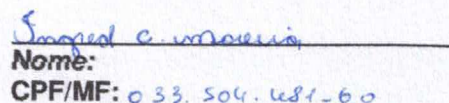 Ingred C. Moreira
Nome:
CPF/MF: 033.504.481-60